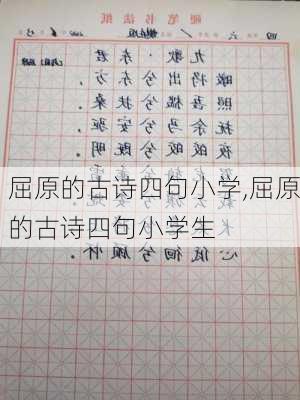 硬笔书法纸
九歌·东君
暾将出兮东方，
照吾槛兮扶桑。
抚余马兮安驱，
夜皎皎兮既明。
屈原的古诗四句小学,屈原
的古诗四句小学生
心低徊兮顾怀。